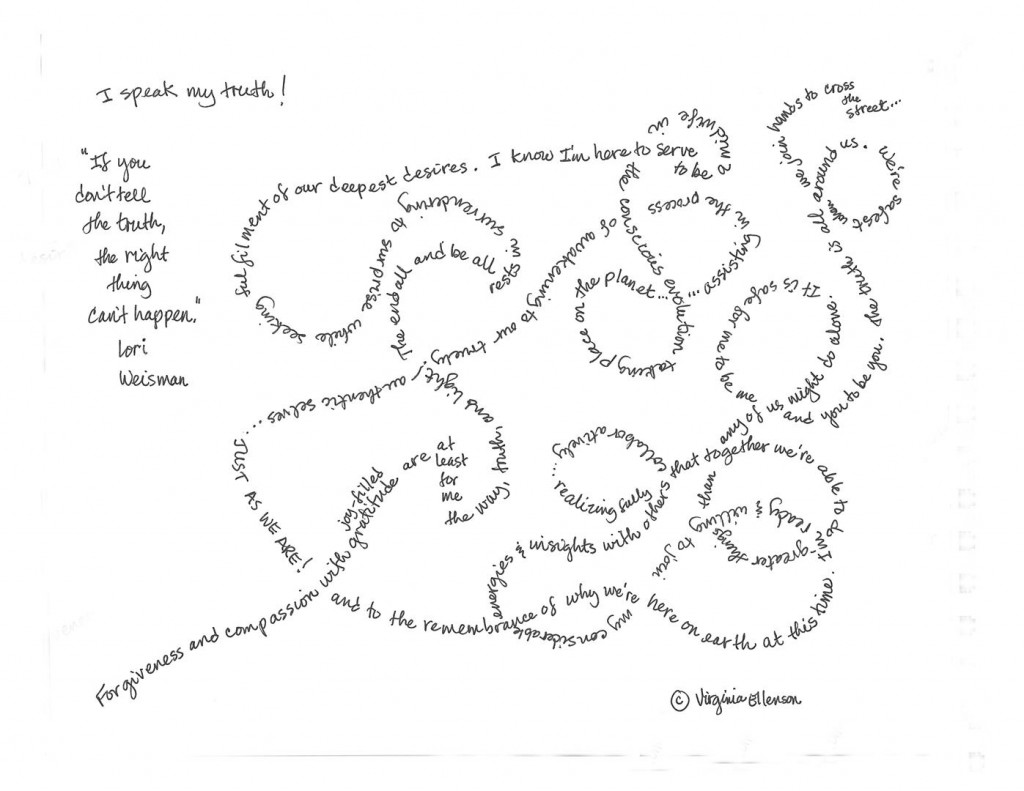 I speak my truth!
"If you
don't tell
the truth,
the right
thing
can't happen."
Lori
Weisman
Forgiveness and compassion with joy-filled gratitude are
at
least
for
me
the way, truth, and light!
The end all and be all
rests in surrendering to surprise while seeking
fulfilment of our deepest desires. I know I'm here to serve
to be a midwife in
the conscious evolution taking place on the planet...
...assisting in the process
of awakening to our truely authentic selves...
JUST AS WE ARE!
and to the remembrance of why we're here on earth at this time.
I'm ready & willing to join
my considerable energies & insights with others
collaboratively
...realizing fully
that together we're able to do
greater things than
any of us might do alone.
It is safe for me to be me
and you to be you.
The truth is all around us.
We're safest when we join hands to cross
the
street...
© Virginia Ellenson